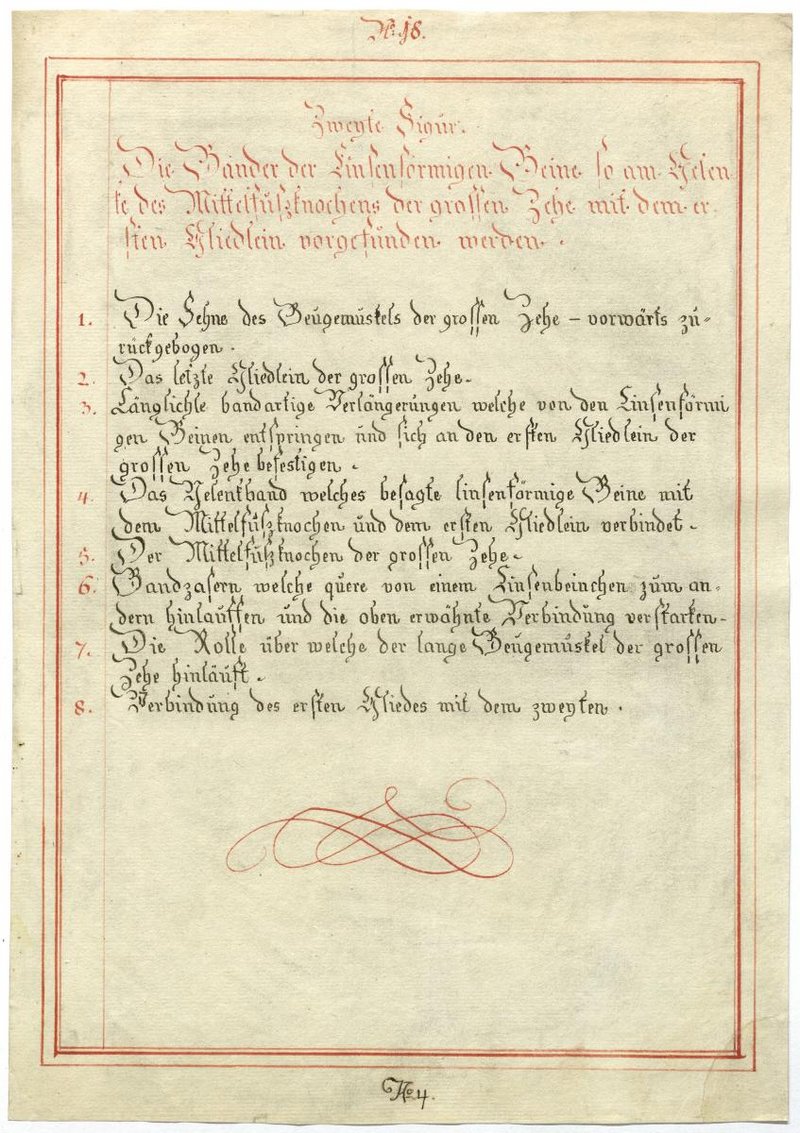 No. 18.
Zweyte Figur.
Die Bänder der Linsenförmigen Beine so am Gelen
ke des Mittelfußknochens der grossen Zehe mit dem er
sten Gliedlein vorgefunden werden.
1. Die Sehne des Beugemuskels der grossen Zehe – vorwärts zu-
rückgebogen.
2. Das letzte Gliedlein der grossen Zehe.
3. Länglichte bandartige Verlängerungen welche von den Linsenförmi
gen Beinen entspringen und sich an den ersten Gliedlein der
grossen Zehe befestigen.
4. Das Gelenkband welches besagte linsenförmige Beine mit
dem Mittelfußknochen und dem ersten Gliedlein verbindet.
5. Der Mittelfußknochen der grossen Zehe.
6. Bandzasern welche quere von einem Linsenbeinchen zum an-
dern hinlauffen und die oben erwähnte Verbindung verstarken.
7. Die Rolle über welche der lange Beugemuskel der grossen
Zehe hinläuft.
8. Verbindung des ersten Gliedes mit dem zweyten.
No 4.